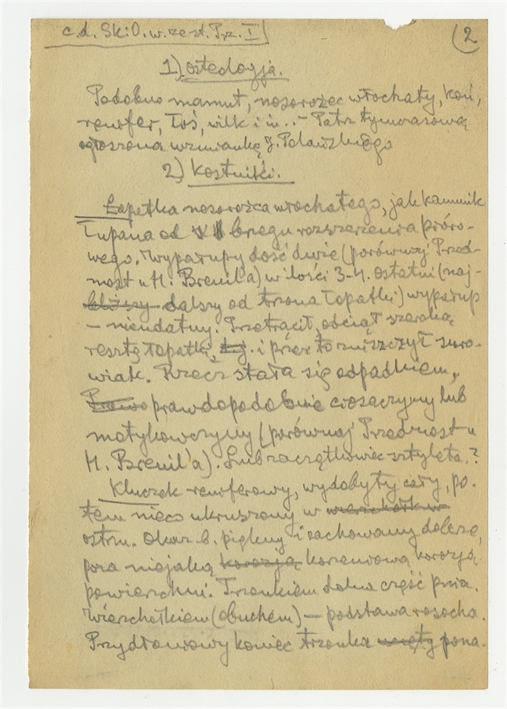 c.d. Sk. i O. w. ze st. Prz. I
(2
1) osteologja.
Podobno mamut, nosorożec włochaty, koń,
renifer, łoś, wilk i in. – Patrz tymczasową
ogłoszoną wzmiankę J. Polańskiego
2) Kostniki.
Łopatka nosorożca włochatego, jak kamnik
łupana od brzegu rozszerzenia
wego. Wyparupy dość duże (porównaj Pred-
most u H. Breuil'a) w ilości 3-4. Ostatni (naj-
bliższy dalszy od trzona łopatki) wyparup
– nieudatny. Przetrącił, obciął szeroką
resztę łopatki, i przez to zniszczył suro-
wiak. Rzecz stała się odpadkiem,
prawdopodobnie ciosaczyny lub
motykowczyny (porównaj Predmost u
H. Breuil'a). Lub zaczątkowiec sztyleta?
Kluczek reniferowy, wydobyty cały, po-
tem nieco ukruszony w wierchołku
ostrzu. Okaz b. piękny i zachowany dobrze,
poza niejaką korozją korzeniową korozją
powierzchni. Trzonkiem dolna część pnia.
Wierzchołkiem (obuchem) – podstawa rosocha.
Przydłoniowy koniec trzonka ucięty pona-